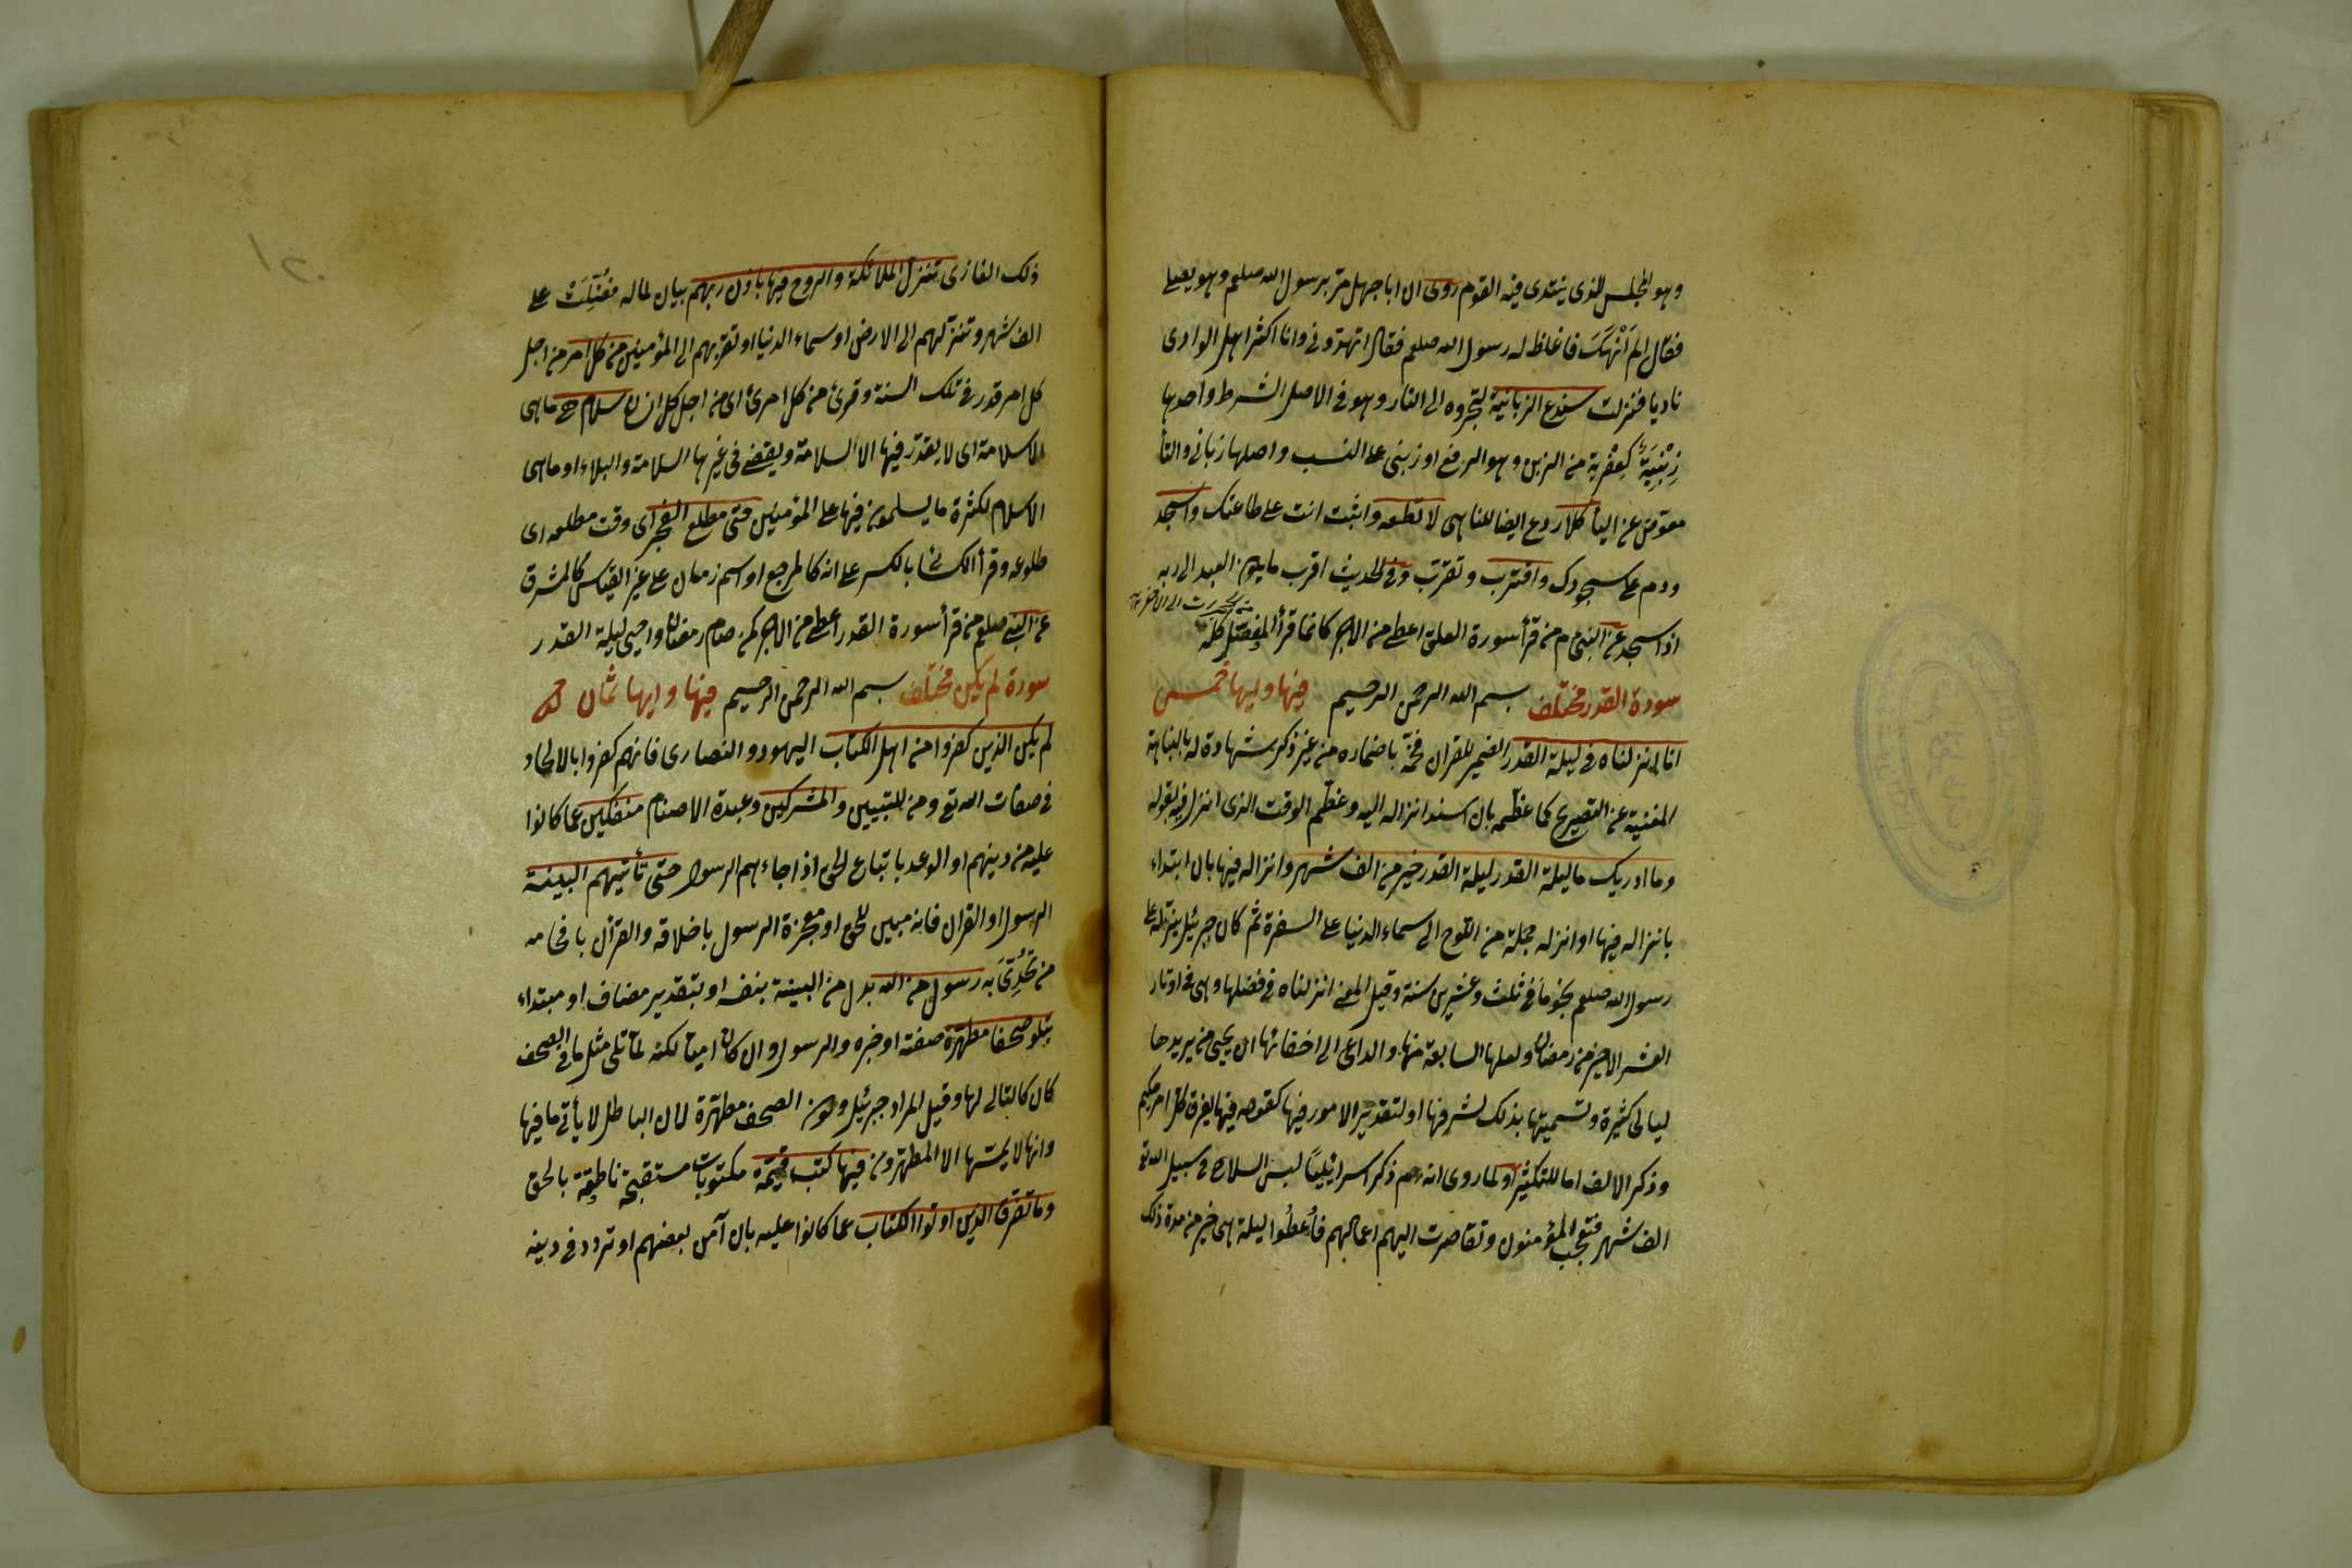 وهو المجلس الذى ينتدى فيه القوم روى ان ابا جهل مر برسول الله صلعم وهو يصلى
فقال الم اَنْهَكَ فاغلظ له رسول الله صلعم فقال اتهددنى وانا اكثر اهل الوادى
ناديا فنزلت سندع الزبانية ليجروه الى النار وهو فى الاصل الشرط واحدها
زِبْنِيَةٌ كعِفْرِية من الزبن وهو الدفع او زبنى على النسب واصلها زبانى والتأ
معوّض عن اليأ كلا ردع ايضا للناهى لا تطعه واثبت انت على طاعتك واسجد
ودم على سجودك واقترب وتقرّب وفى الحديث اقرب ما يكون العبد الى ربه
اذا سجد عن النبى م من قرأ سورة العلق اعطى من الاجر كانما قرأ المفصّل كلّه
سورة القدر مختلف فيها وايها خمس بسم الله الرحمن الرحيم
انا انزلناه فى ليلة القدر الضمير للقران فخّمه باضماره من غير ذكر شهادة له بالنباهة
المغنية عن التصريح كما عظّمه بان اسند انزاله اليه وعظّم الوقت الذى انزل فيه بقوله
وما ادريك ما ليلة القدر ليلة القدر خير من الف شهر وانزاله فيها بان ابتداء
بانزاله فيها او انزله جملة من اللوح الى سماء الدنيا على السفرة ثم كان جبرئيل ينزله على
رسول الله صلعم نجوما فى ثلث وعشرين سنة وقيل المعنى انزلناه فى فضلها وهى فى اوتار
العشر الاخير من رمضان ولعلها السابعة منها والداعى الى اخفائها ان يحيى من يريدها
ليالى كثيرة وتسميتها بذلك لشرفها او لتقدير الامور فيها كقوله فيها يفرق كل امر حكيم
وذكر الالف اما للتكثير او لما روى انه م ذكر اسرائيليًا لبس السلاح فى سبيل الله تع
الف شهر فتعجب المؤمنون وتقاصرت اليهم اعمالهم فأُعطُوا ليلة هى خير من مدة ذلك
ذلك الغازى تنزل الملائكة والروح فيها باذن ربهم بيان لما له فُضِّلَتْ على
الف شهر وتنزلهم الى الارض او سماء الدنيا او تقربهم الى المؤمنين من كل امر من اجل
كل امر قدر فى تلك السنة وقرئ من كل امرئ اى من اجل كل انسان سلام هى ما هى
الا سلامة اى لا يقدّر فيها الا السلامة ويقضى فى غيرها السلامة والبلاء او ما هى
الا سلام لكثرة ما يسلمون فيها على المؤمنين حتى مطلع الفجر اى وقت مطلعه اى
طلوعه وقرأ الكسائى بالكسر على انه كالمرجع او اسم زمان على غير القياس كالمشرق
عن النبى صلعم من قرأ سورة القدر اعطى من الاجر كمن صام رمضان واحيى ليلة القدر
سورة لم يكن مختلف فيها وايها ثمان بسم الله الرحمن الرحيم
لم يكن الذين كفروا من اهل الكتاب اليهود والنصارى فانهم كفروا بالالحاد
فى صفات الله تع ومن للتبيين والمشركين وعبدة الاصنام منفكين عما كانوا
عليه من دينهم او الوعد باتباع الحق اذا جاءهم الرسول حتى تأتيهم البينة
الرسول او القران فانه مبين للحق او معجزة الرسول باخلاقه والقرآن بافحامه
من تُحُدِّىَ به رسول من الله بدل من البينة بنفسه او بتقدير مضاف او مبتداء
يتلو صحفا مطهرة صفته او خبره والرسول وان كان اميا لكنه لما تلى مثل ما فى الصحف
كان كالتالى لها وقيل المراد جبرئيل وكون الصحف مطهّرة لان الباطل لا يأتى ما فيها
وانها لا يمسّها الا المطهرون فيها كتب قيّمة مكتوبات مستقيمة ناطقة بالحق
وما تفرق الذين اوتوا الكتاب عما كانوا عليه بان آمن بعضهم او تردد فى دينه